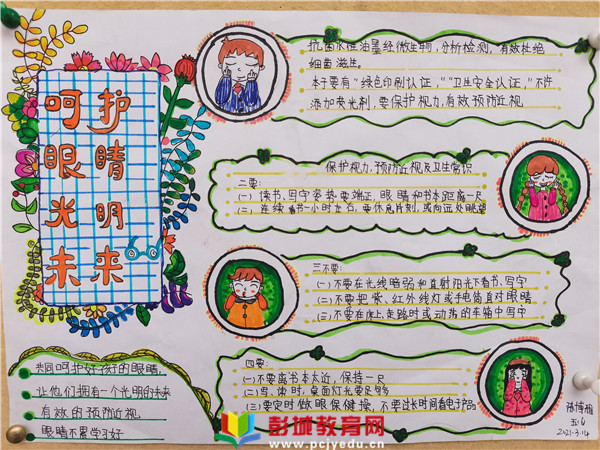 呵护
眼睛
光明
未来
抗菌水性油墨经微生物,分析检测,有效杜绝
细菌滋生。
本子要有“绿色印刷认证,”“卫生安全认证,”不许
添加荧光剂,要保护视力,有效预防近视
保护视力、预防近视及卫生常识
二要:
(一)读书、写字姿势要端正,眼睛和书本距离一尺
(二)连续看书一小时左右,要休息片刻,或向远处眺望
三不要:
(一)不要在光线暗弱和直射阳光下看书、写字
(二)不要把紫、红外线灯或手电筒直对眼睛
(三)不要在床上、走路时或动荡的车箱中写字
四要:
(一)不要离书本太近,保持一尺
(二)写、读时,桌面灯光要足够
(三)要定时做眼保健操,不要过长时间看电子产品
共同呵护好孩子的眼睛,
让他们拥有一个光明的未来
有效的预防近视
眼睛不累学习好
2021.3.14
彭城教育网
www.pcjyedu.cn